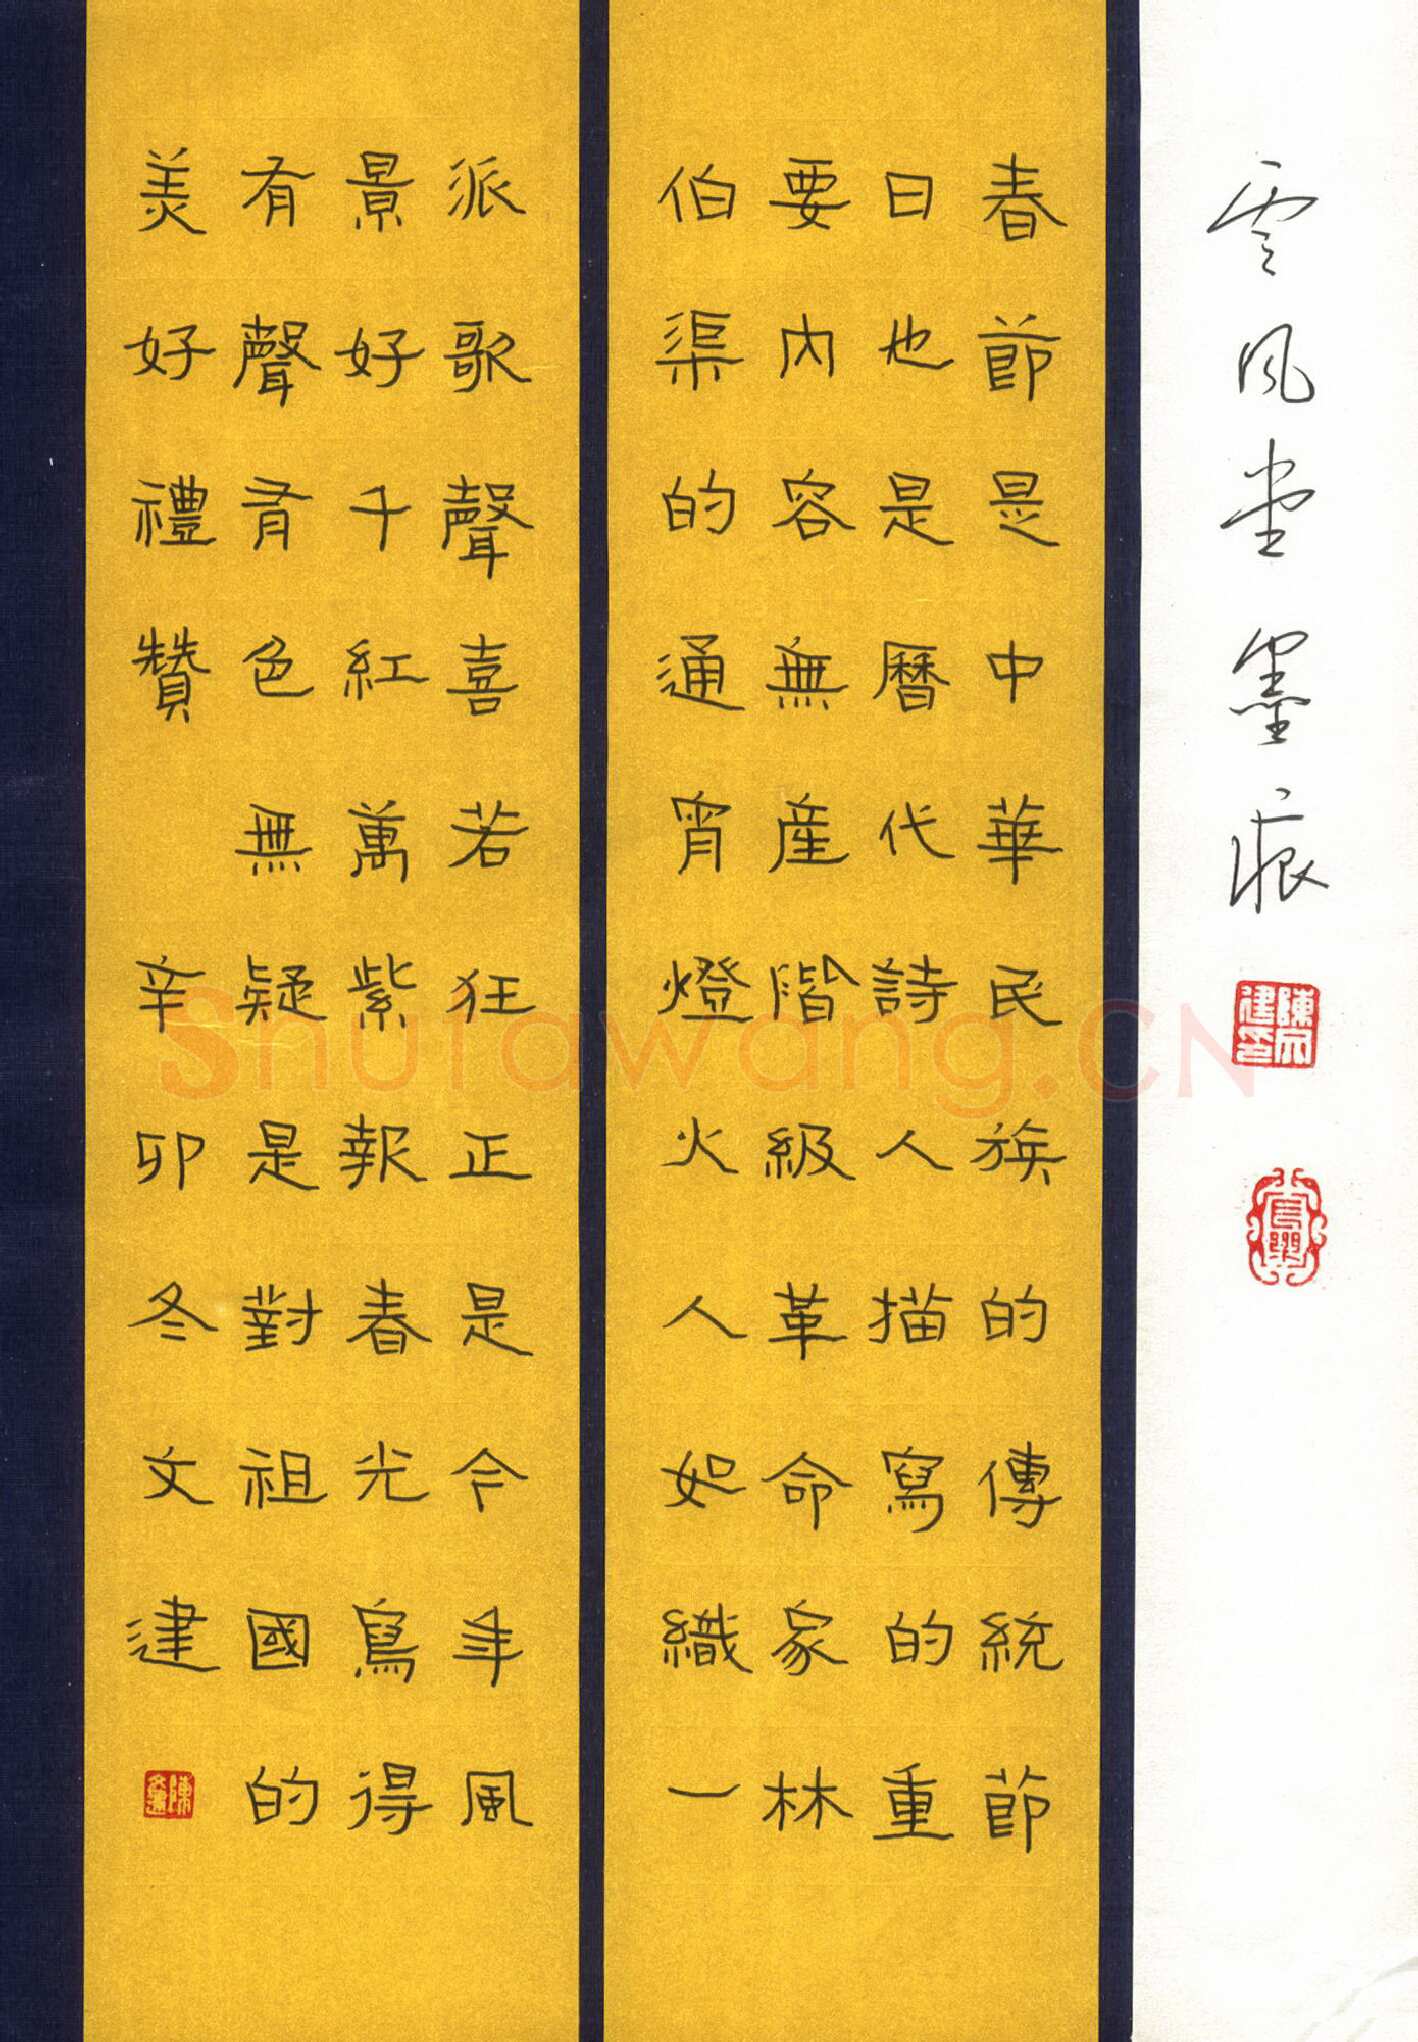 雲风堂墨痕
陳文建印
春節是中華民族的傳統節
日也是曆代詩人描寫的重
要内容無產階級革命家林
伯渠的通宵燈火人如織一
派歌聲喜若狂正是今年風
景好千紅萬紫報春光寫得
有聲有色無疑是對祖國的
美好禮贊 辛卯冬文建
陳文建
Shufawang.CN